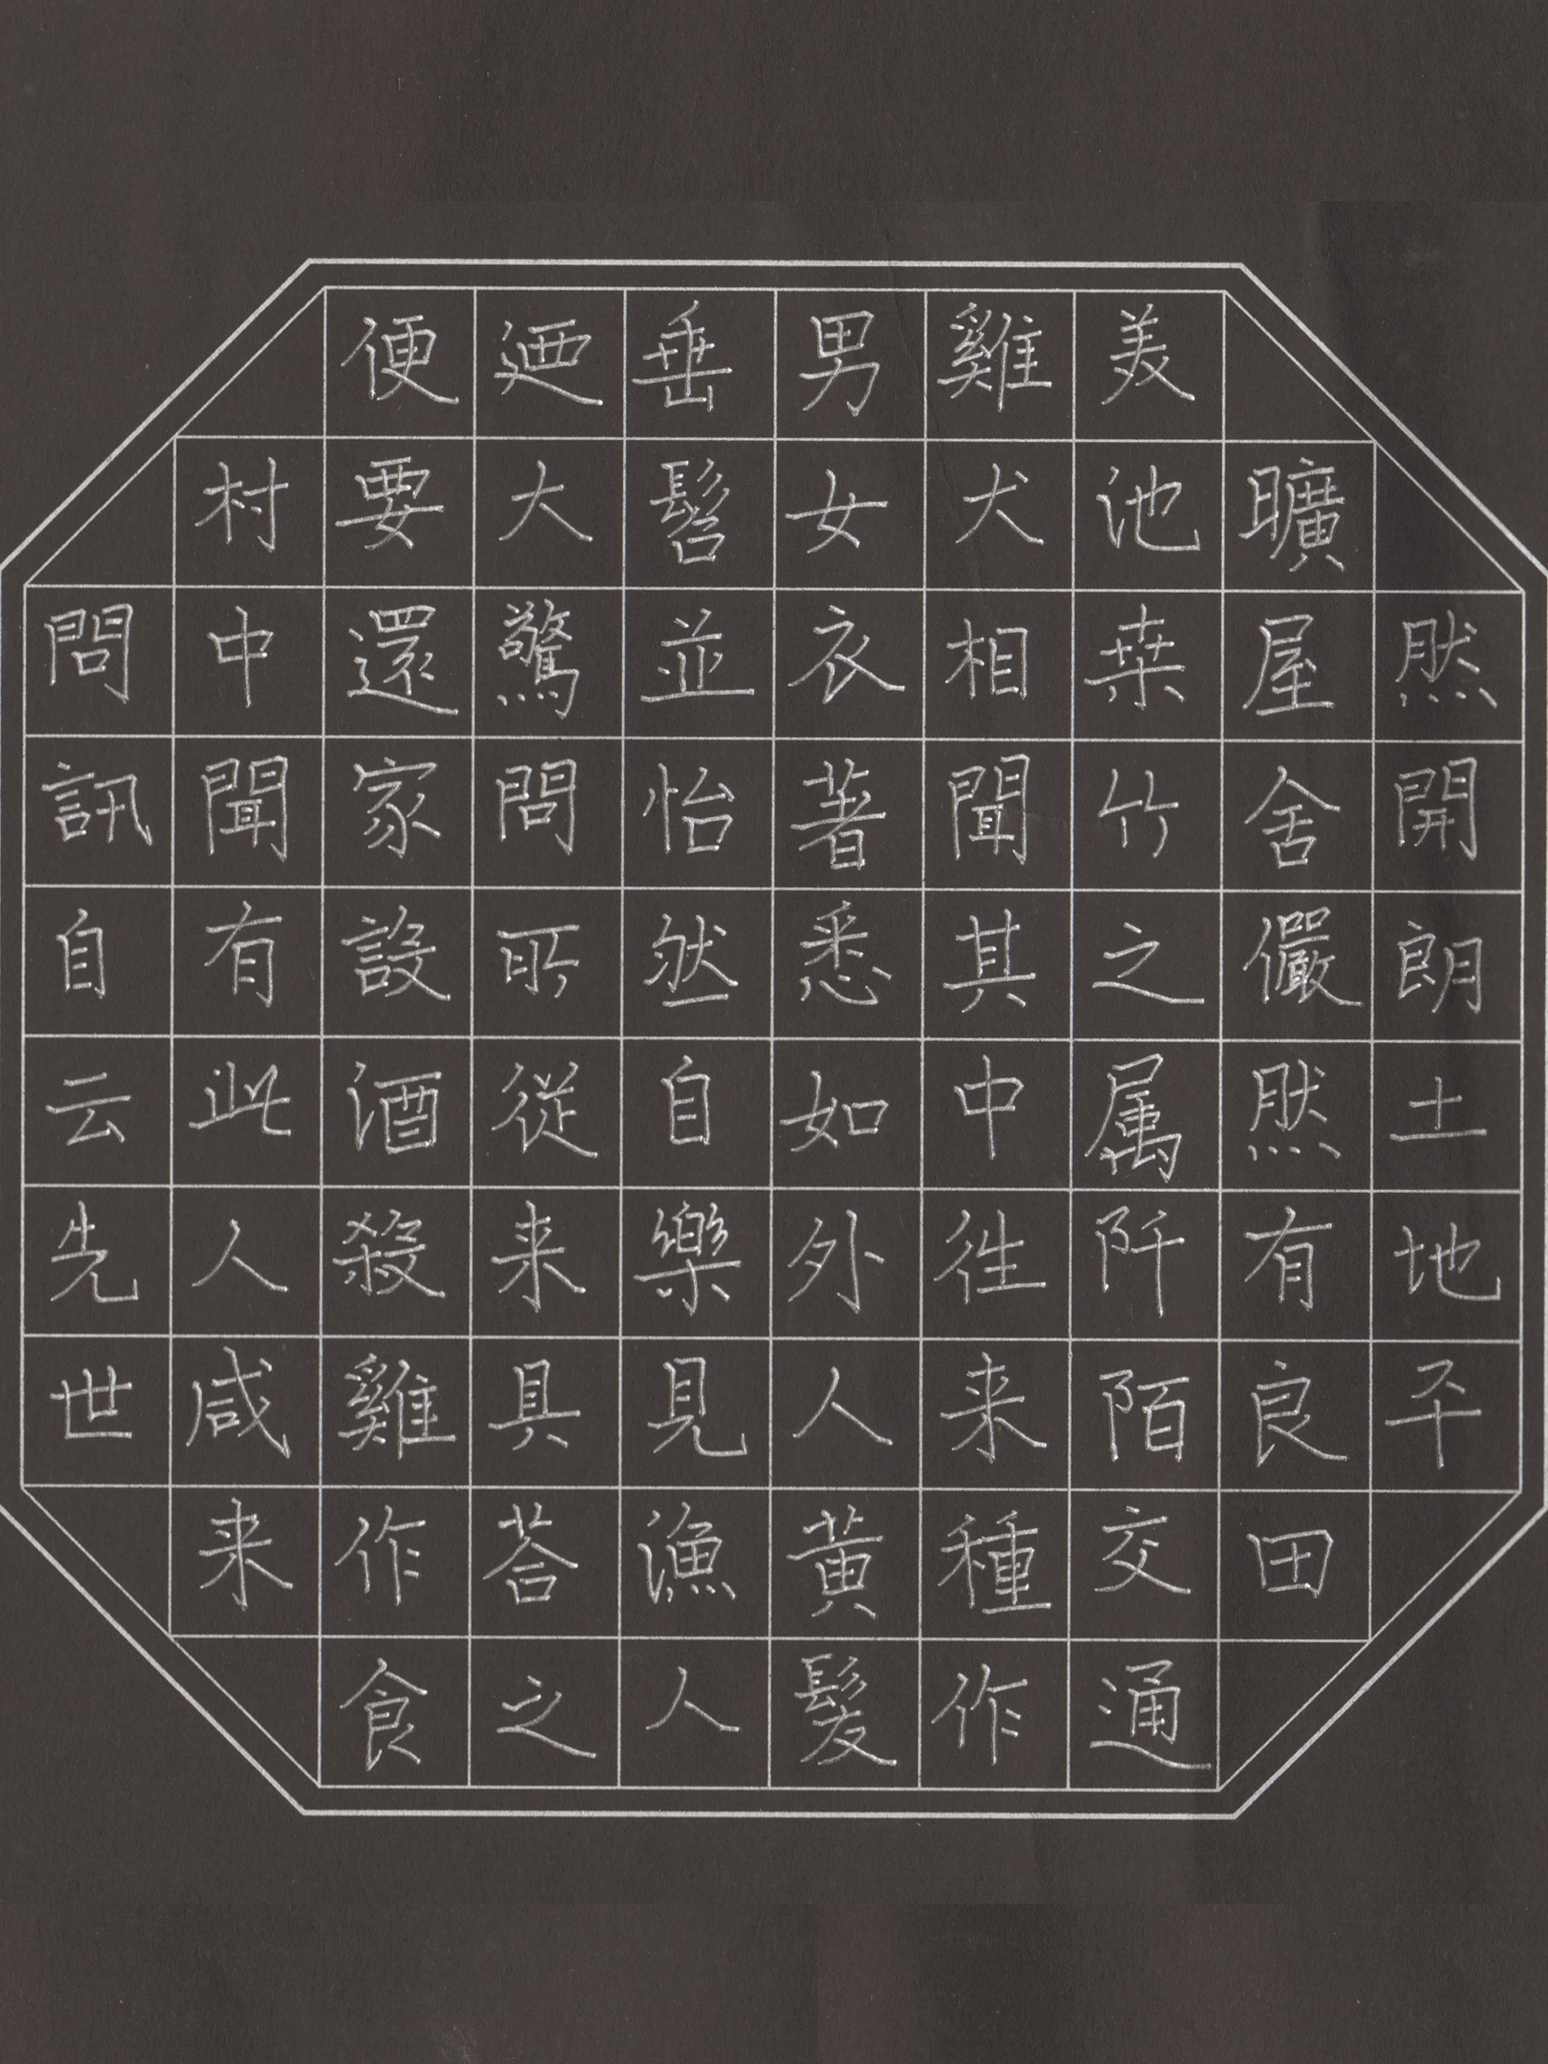 然開朗土地平
曠屋舍儼然有良田
美池桒竹之属阡陌交通
雞犬相聞其中徃来種作
男女衣著悉如外人黄髮
垂髫並怡然自樂見漁人
廼大驚問所從来具荅之
便要還家設酒殺雞作食
村中聞有此人咸来
問訊自云先世